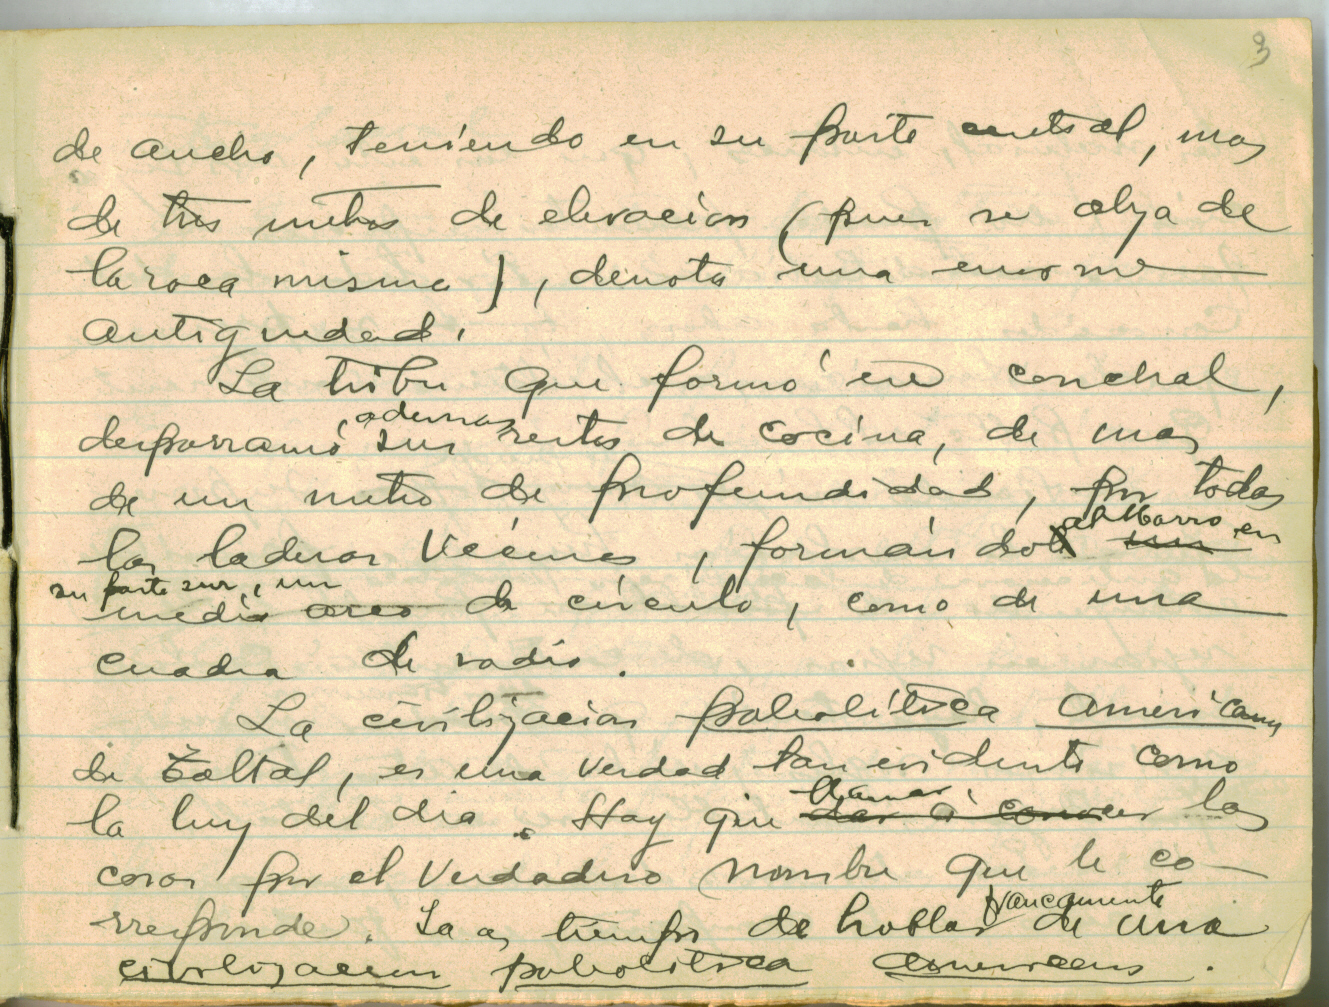 3
de ancho, teniendo en su parte central, mas
de tres metros de elevacion (pues se aleja de
la roca misma), denota una enorme
antiguedad.
La tribu que formó este conchal,
desparramó, ademas sus restos de cocina, de mas
de un metro de profundidad, por todas
las laderas vecinas, formándole al Morro en
su parte sur, un
medio arco de circulo, como de una
cuadra de radio.
La civilizacion paleolítica Americana
de Taltal, es una verdad tan evidente como
la luz del dia. Hay que llamar las
cosas por el verdadero nombre que le co-
rresponde. Ya es tiempo de hablar francamente de una
civilizacion paleolitica americana.